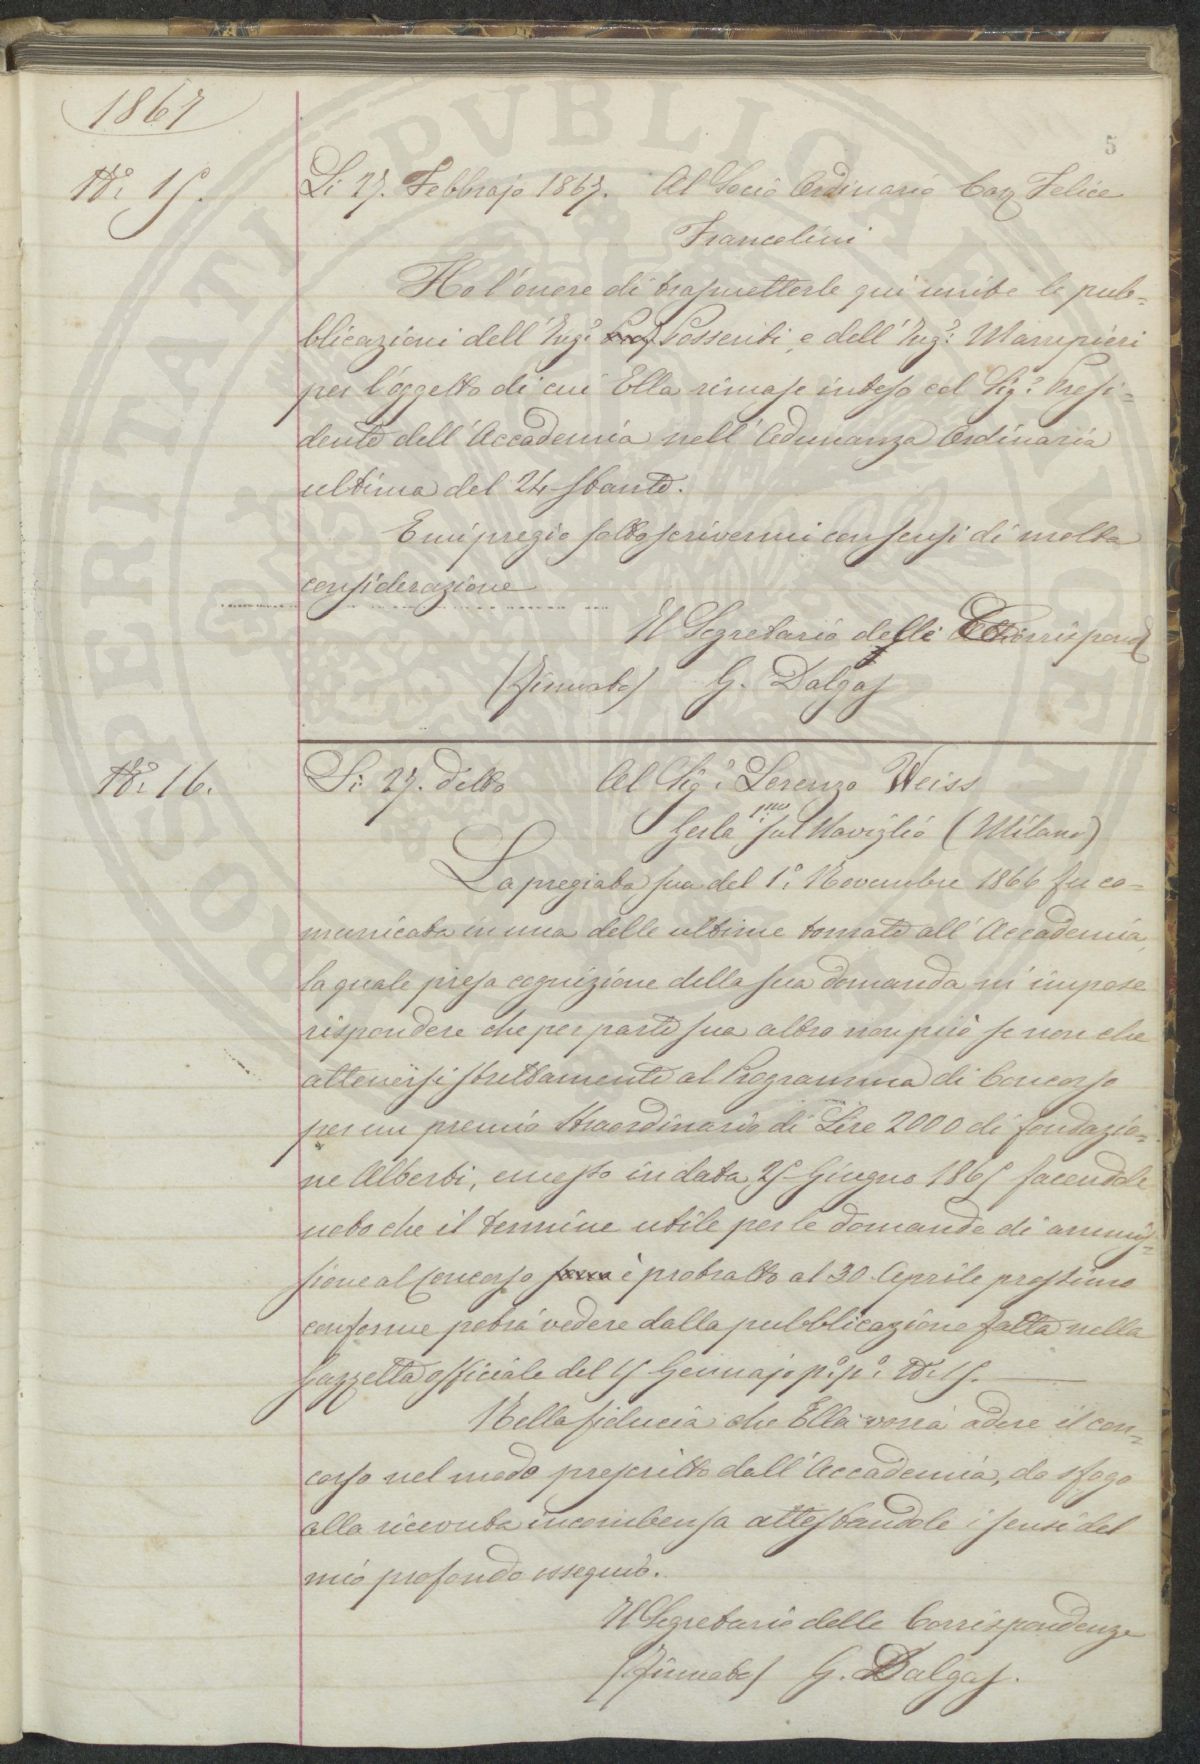 1867
5
N.° 15.
Li 27. Febbrajo 1867. Al Socio Ordinario Cav Felice
Francolini
Ho l'onore di trasmetterle qui unite le pub=
blicazioni dell'Ing.e Possenti, e dell'Ing.e Manipieri
per l'oggetto di cui Ella rimase inteso col Sig.r Presi=
dente dell'Accademia nell'Adunanza Ordinaria
ultima del 24 stante.
E mi pregio sottoscrivermi con sensi di molta
considerazione
Il Segretario delle Corrispond
(Firmato) G. Dalgas
N.° 16.
Li 27. detto Al Sig.r Lorenzo Weiss
Gorla 1.mo sul Naviglio (Milano)
La pregiata sua del 1.° Novembre 1866 fu co=
municata in una delle ultime tornate all'Accademia,
la quale presa cognizione della sua domanda m'impose
rispondere che per parte sua altro non può se non che
attenersi strettamente al Programma di Concorso
per un premio straordinario di Lire 2000 di fondazio=
ne Alberti, emesso in data 25 Giugno 1865 facendole
noto che il termine utile per le domande di ammis=
sione al Concorso è protratto al 30. Aprile prossimo
conforme potrà vedere dalla pubblicazione fatta nella
Gazzetta officiale del 15 Gennajo p.°p.° N.° 15.
Nella fiducia che Ella vorrà adire il con=
corso nel modo prescritto dall'Accademia, do sfogo
alla ricevuta incombensa attestandole i sensi del
mio profondo ossequio.
Il Segretario delle Corrispondenze
(Firmato) G. Dalgas.
PUBLICAE
PROSPERITATI